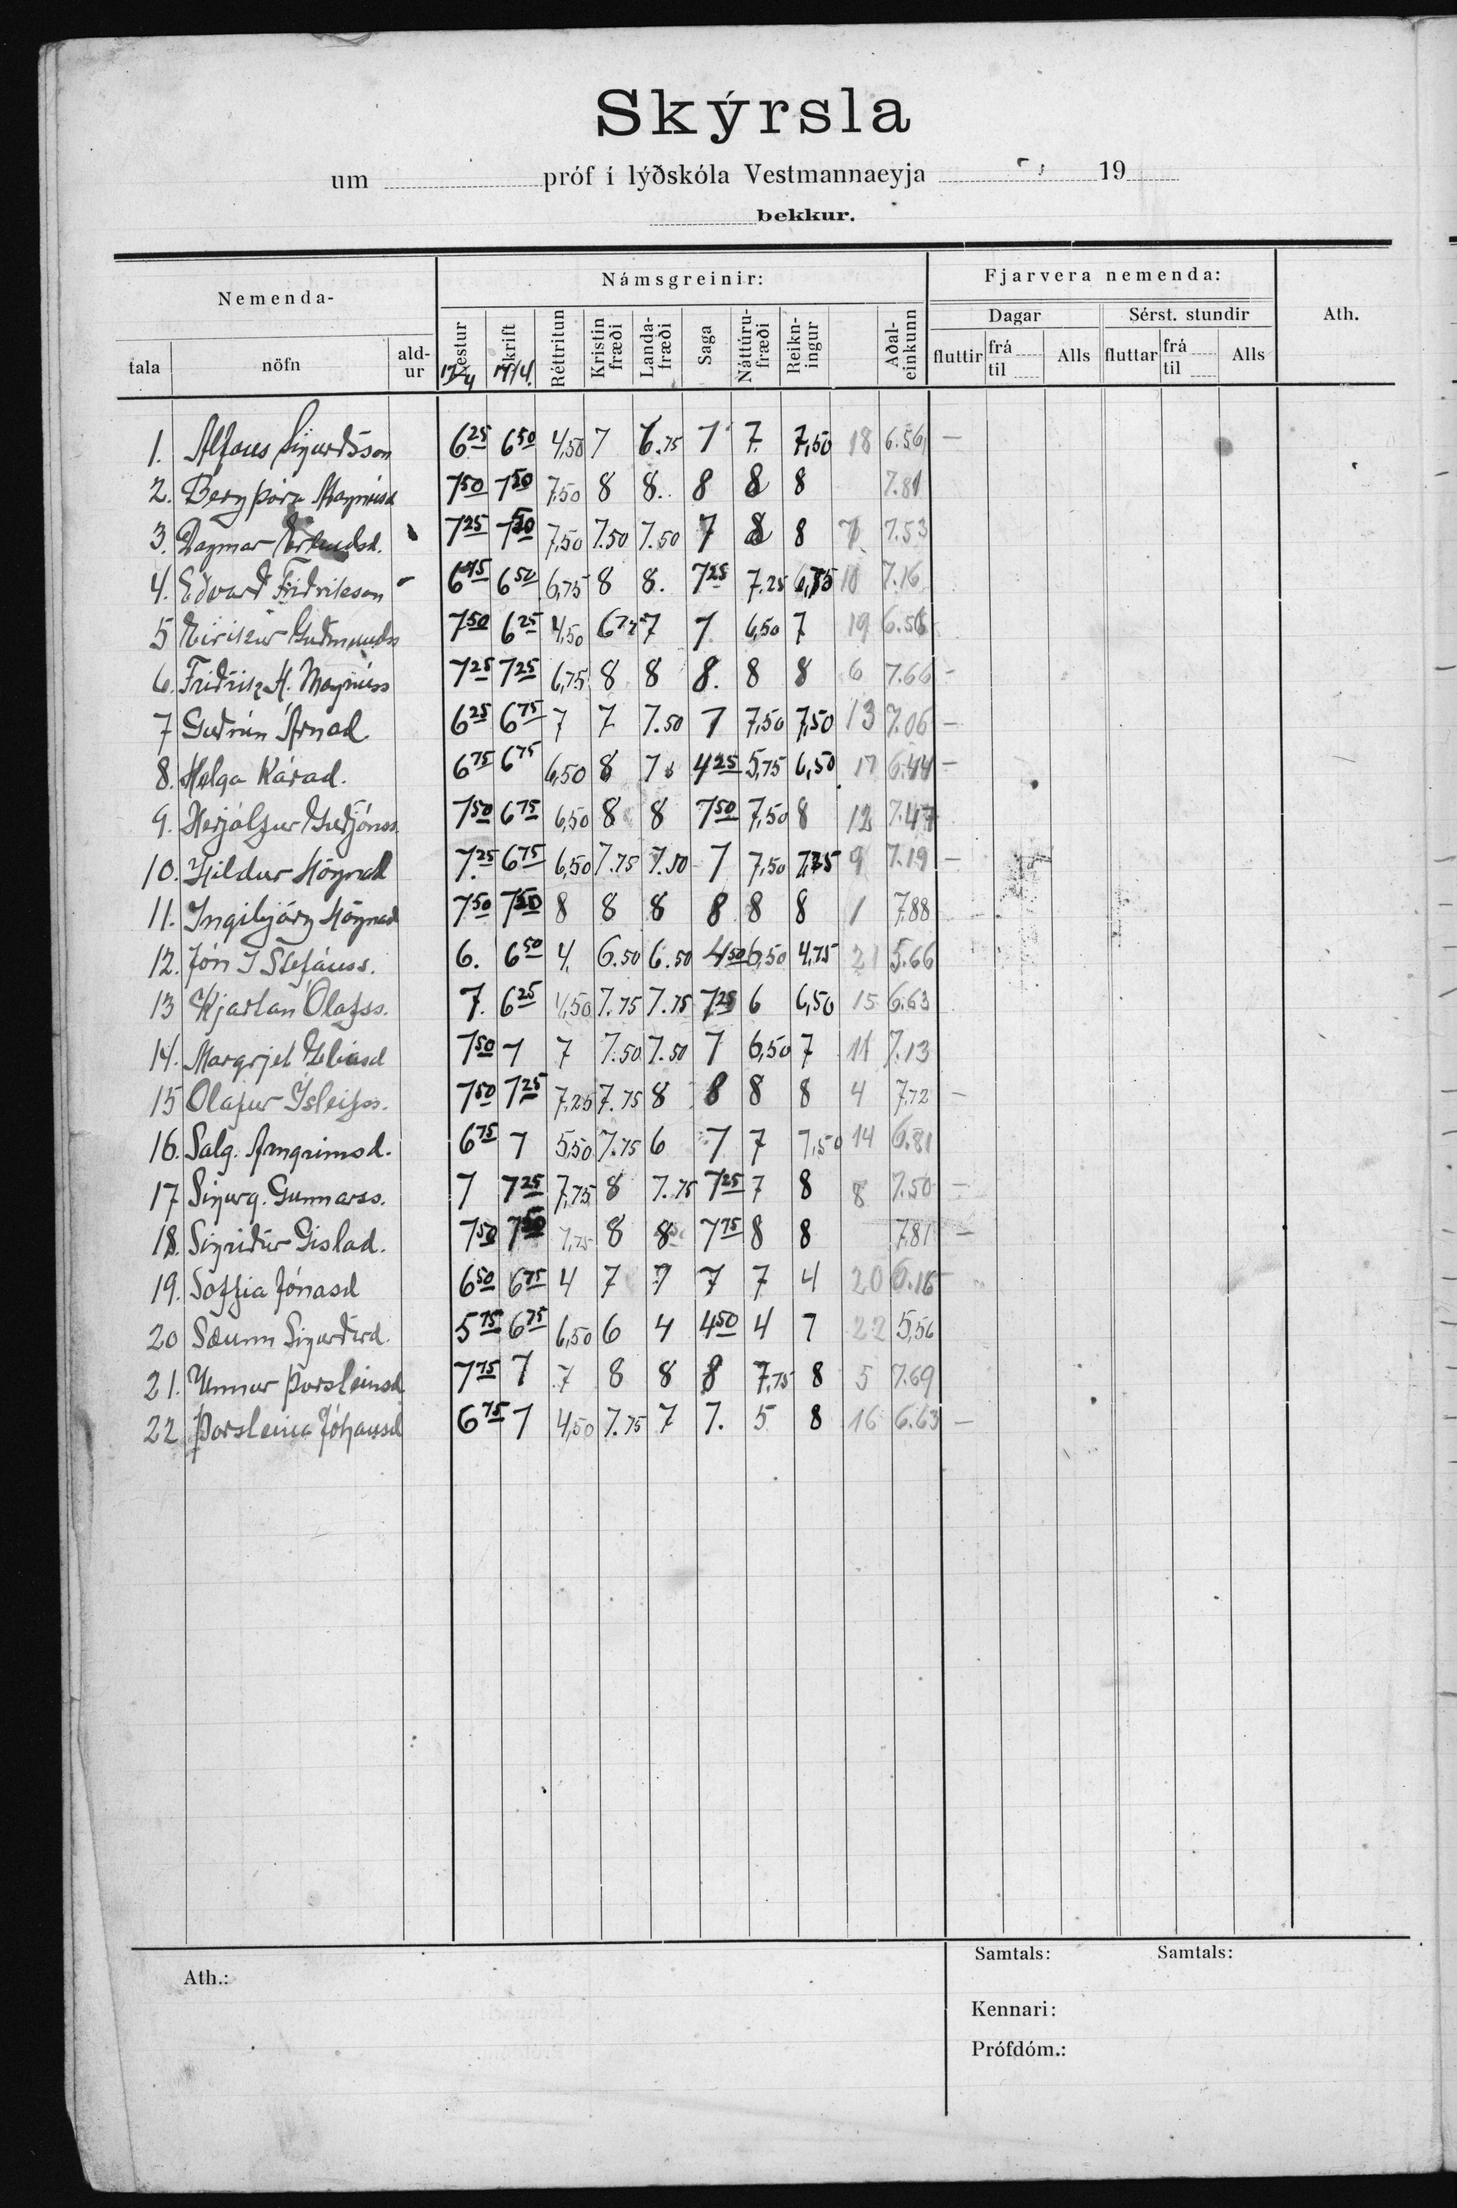 Skýrsla
um próf í lýðskóla Vestmannaeyja 19
bekkur.
Nemenda- Námsgreinir: Fjarvera nemenda: Ath.
Dagar Sérst. stundir
tala nöfn ald-ur Lestur 17/4 Skrift 17/4. Réttritun Kristin fræði Landa-fræði Saga Náttúru-fræði Reikn-ingur Aðal-einkunn fluttir frá til Alls fluttar frá til Alls
1. Alfons Sigurðsson 6 25 6 50 4,50 7 6.75 7 7. 7,50 18 6.56 —
2. Bergþóra Magnúsd 7 50 7 50 7,50 8 8. 8 8 8 7.81
3. Dagmar Erlendsd. 7 25 7 50 7,50 7.50 7.50 7 8 8 7 7.53
4. Edvard Friðriksson 6 75 6 50 6,75 8 8. 7 25 7.25 10 7.16
5 Eirikur Guðmundss 7 50 6 25 4,50 7 7 6,50 7 19 6.56
6. Friðrik H. Magnúss 7 25 7 25 6,75 8 8 8. 8 8 6 7.66 —
7 Guðrún Árnad 6 25 6 75 7 7 7.50 7 7,50 7,50 13 7.06 —
8. Helga Kárad. 6 75 6 75 6,50 8 7 4 25 5,75 6,50 17 6.44 —
9. Herjólfur Guðjónss. 7 50 6 75 6,50 8 8 7 50 7,50 8 12 7.47
10. Hildur Högnad 7. 25 6 75 6,50 7.75 7.50 7 7,50 9 7.19 —
11. Ingibjörg Högnad 7 50 7 50 8 8 8 8 8 8 1 7.88 —
12. Jón I Stefánss. 6. 6 50 4. 6.50 6.50 4 50 6,50 4,75 21 5.66
13 Kjartan Ólafss. 7. 6 25 4,50 7.75 7.75 7 25 6 6,50 15 6.63
14. Margrjet Elíasd 7 50 7 7 7.50 7.50 7 6,50 7 11 7.13
15 Olafur Ísleifss. 7 50 7 25 7,25 7.75 8 8 8 8 4 7.72 —
16. Salg. Arngrimsd. 6 75 7 5,50 7.75 6 7 7 7,50 14 6.81
17 Sigurg. Gunnarss. 7 7 25 7,75 8 7.75 7 25 7 8 8 7.50 —
18. Sigriður Gislad. 7 50 7 50 7,75 8 8 7 75 8 8 7.81 —
19. Soffia Jónasd 6 50 6 75 4 7 7 7 7 4 20 6.16 —
20 Sæunn Sigurðard. 5 75 6 75 6,50 6 4 4 50 4 7 22 5,56
21. Unnur Þorsteinsd 7 75 7 7 8 8 8 7,75 8 5 7.69
22 Þorsteina Jóhannsd 6 75 7 4,50 7.75 7 7. 5 8 16 6.63 —
Ath.: Samtals: Samtals:
Kennari:
Prófdóm.: